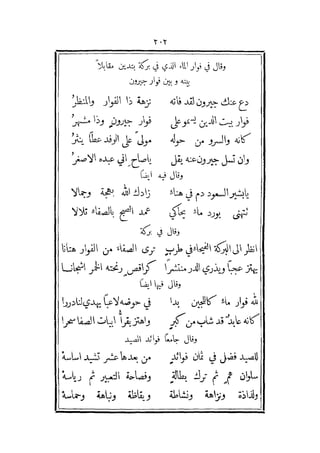 ٢٠٢
وقال في فوار الماء الذي في بركة بتدين مقابلاً
بينه و بين فوار جيرون
دع عنك جيرون لقد فاته نزهة ذا الفوار والمنظرُ
فوار بيت الدين يسمو على فوار جيرون وذا مشهرُ
كانه والسرو من حوله مولىً على الوفد عطًا ينثرُ
وان تسل جيرون عنه يقل ياصاح اني عبده الاصغرُ
وقال فيه ايضا
يابشير السعود دم في هناء زادك الله بهجة وجمالا
تنهى بورد ماء يحاكي عمد الصبح بالصفاء تلالا
وقال في بركة
انظر الى البركة الفيحاء في طرب ترى الصفاء من الفوار هتانا
يهتز عجبًا ويذري الدر منتشرًا كراقص رنحته الخمر اشجانا
وقال فيها ايضا
لله فوار ماء كاللجين بدا في حوضه لاعبًا يهدي لنادررا
كانه عابد قد شاب من كبر واهتز يقرأ ابيات الصفا سحرا
وقال جامعًا فوائد الصيد
للصيد فضل في ثمان فوائد من بعدها عشر تشيد اساسه
سلوان هم ثم ترك بطالة وفصاحة التعبير ثم رياسه
ولذاذة ونزاهة ونشاطة ويقاظة ونباهة وحماسه